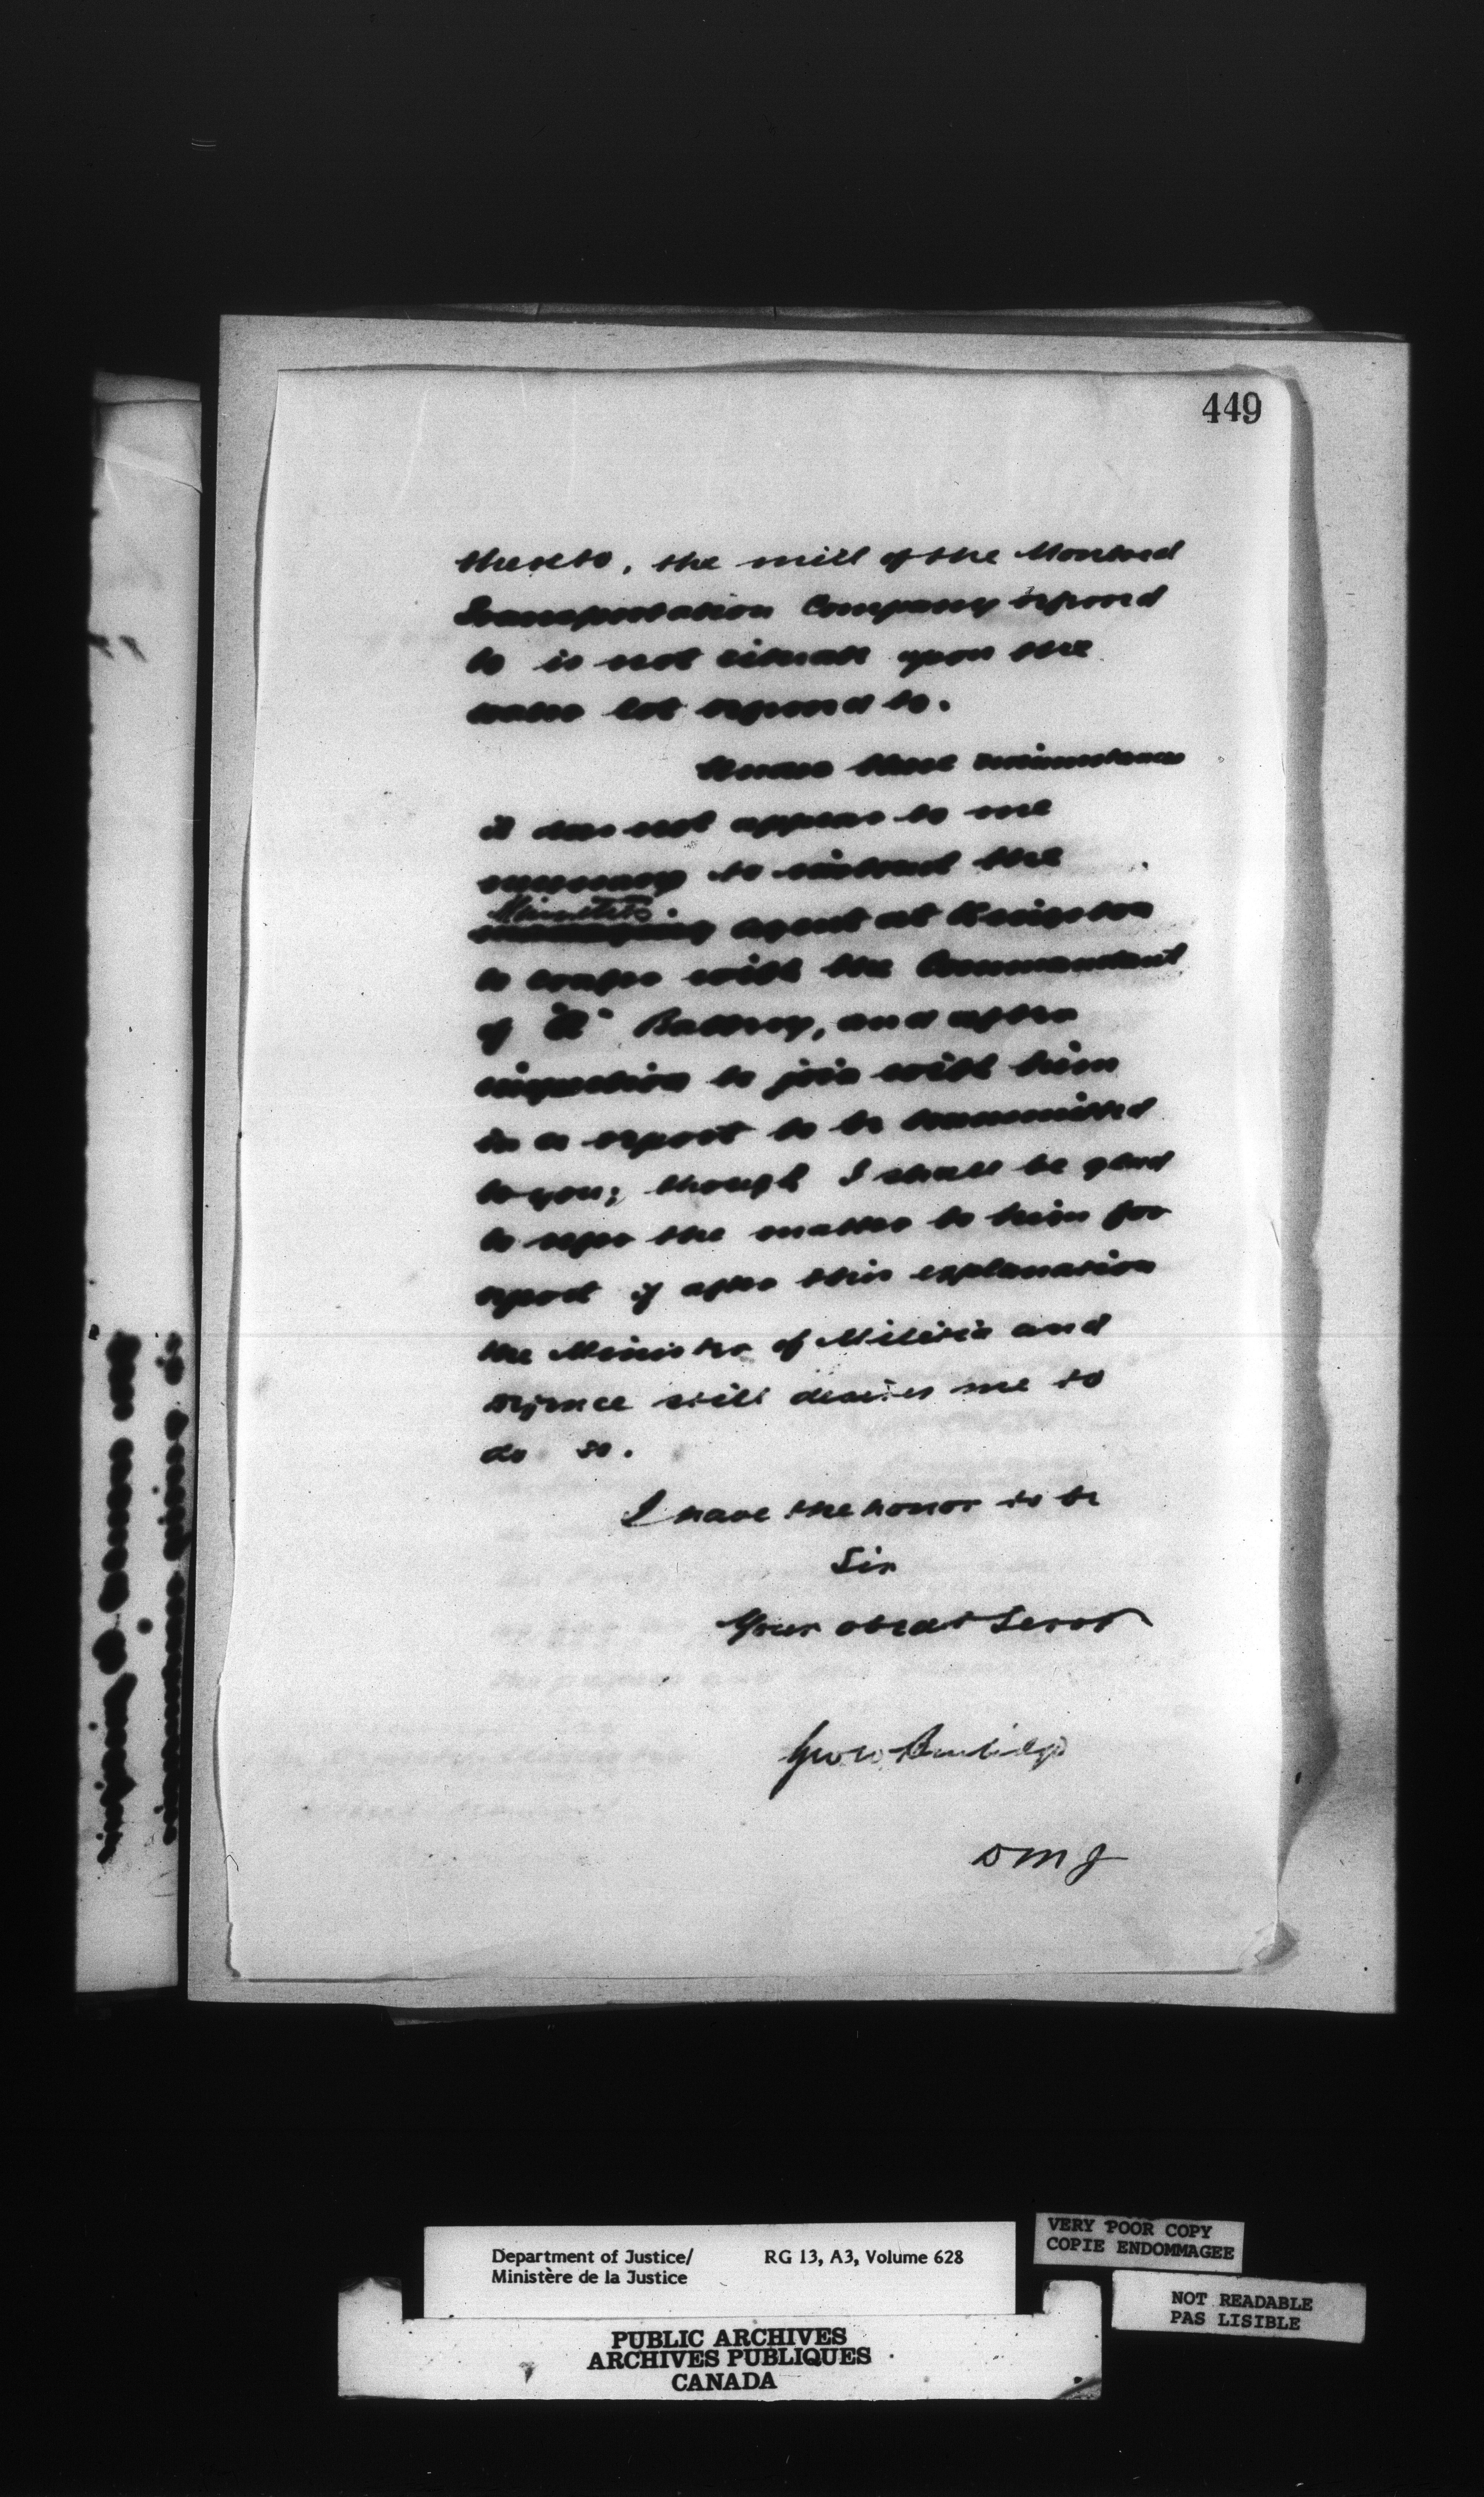 449
thereto, the mill of the Montreal
Transportation Company referred
to is not situate upon the
water lot referred to.
Under these circumstances
it does not appear to me
necessary to instruct the
Minister's
agent at Kingston
to confer with the Commandant
of "A" Battery, and after
inspection to join with him
in a report to be transmitted
to you; though I shall be glad
to refer the matter to him for
report if after this explanation
the Minister of Militia and
Defence still desires me to
do so.
I have the honor to be
Sir
Your obedt Servt
Geo W Burbidge
DMJ
Department of Justice/ RG 13, A3, Volume 628
Ministère de la Justice
VERY POOR COPY
COPIE ENDOMMAGEE
NOT READABLE
PAS LISIBLE
PUBLIC ARCHIVES
ARCHIVES PUBLIQUES
CANADA